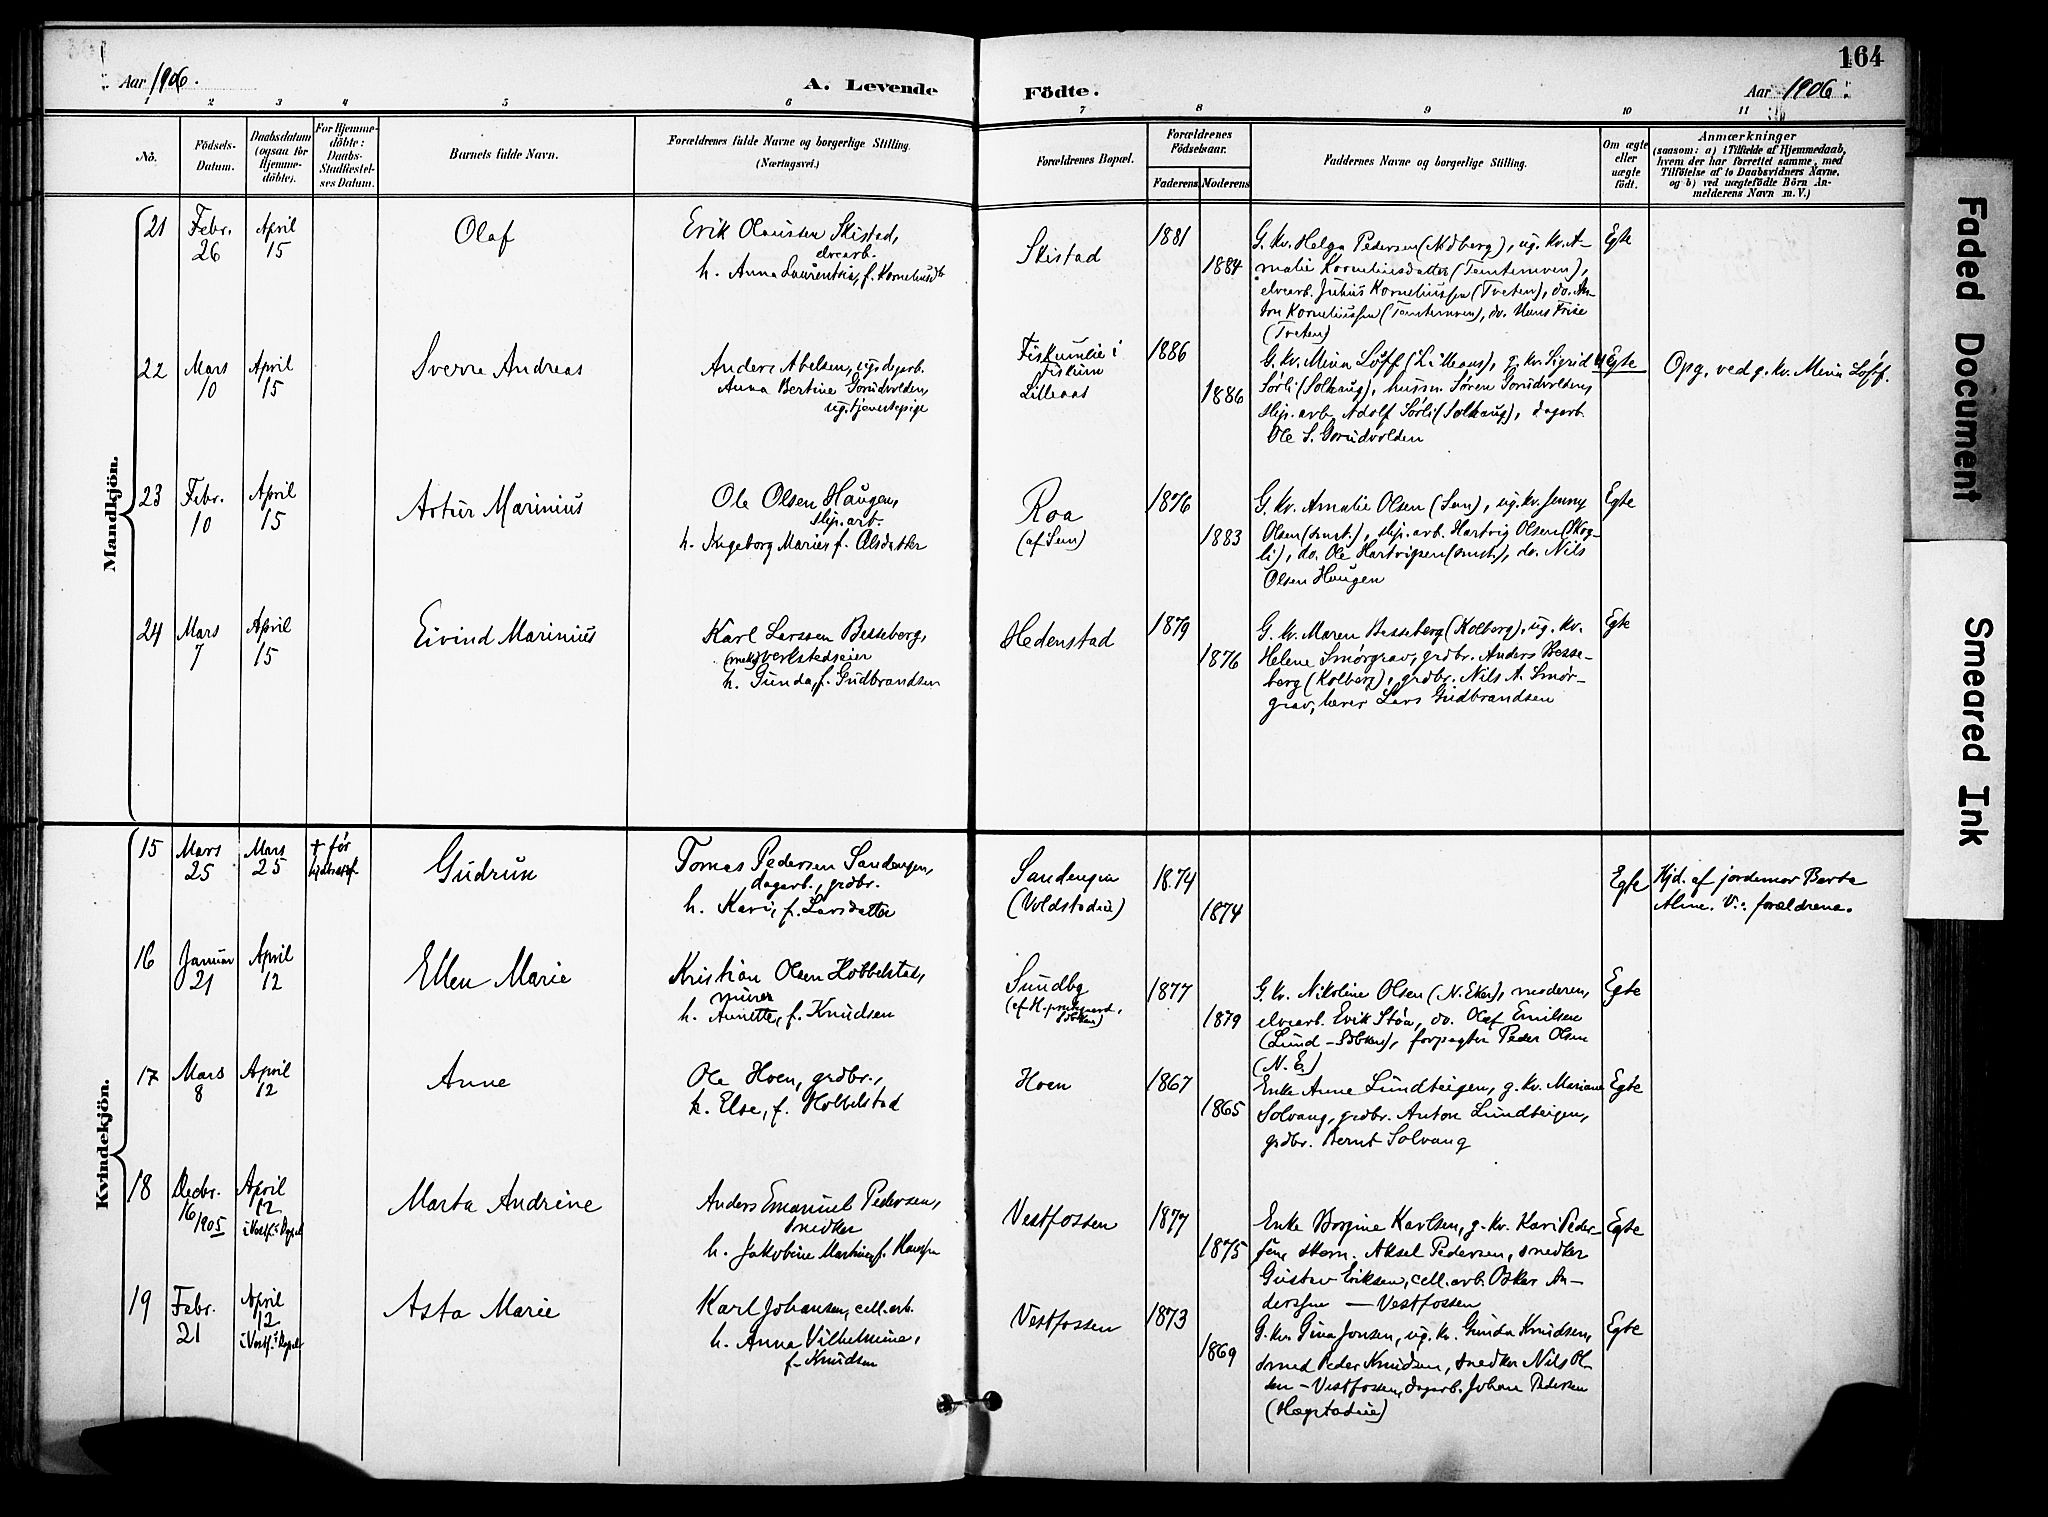 164
Aar 1906.
A. Levende
Födte.
Aar 1906.
1 2 3 4 5 6 7 8 9 10 11
No.
Födsels-
Datum.
Daabsdatum
(ogsaa for
Hjemme-
döbte).
For Hjemme-
döbte:
Daabs-
Stadfæstel-
ses Datum.
Barnets fulde Navn.
Forældrenes fulde Navne og borgerlige Stilling.
(Næringsvei.)
Forældrenes Bopæl.
Forældrenes
Födselsaar.
Faderens
Moderens
Faddernes Navne og borgerlige Stilling.
Om ægte
eller
uægte
födt.
Anmærkninger
(saasom: a) i Tilfælde af Hjemmedaab,
hvem der har forrettet samme, med
Tilföielse af to Daabsvidners Navne,
og b) ved uægtefödte Börn An-
melderens Navn m. V.)
Mandkjön.
21
Febr.
26
April
15
Olaf
Erik Skistad,
elvearb.
h. Anna Laurentia, f.
Skistad
1881
1884
G. kv. Helga Pedersen, ug. kv. A-
malie Korneliusdatter
elvearb. Julius Korneliussen (Tveten), do. An-
ton Korneliussen, do. Hans
(Tveten)
Egte
22
Mars
10
April
15
Sverre Andreas
Anders Abelsen,
Anna Bertine Gorudvolden,
ug. tjenestepige
i
Fiskum
Lilleaas
1886
1886
G. kv. Mina Løff (Lilleaas), g. kv. Sigrid
Sørli (Solhaug), husm. Søren Gorudvolden,
slip.arb. Adolf Sørli (Solhaug), dagarb.
Ole S. Gorudvolden
uEgte
Opg. ved g. kv. Mina Løff.
23
Febr.
10
April
15
Artur Marinius
Ole Olsen Haugen,
slip.arb.
h. Ingeborg Marie, f. Olsdatter
Roa
(af Sem)
1876
1883
G. kv. Amalie Olsen (Sem), ug. kv. Jenny
Olsen (smst.), slip. arb. Hartvig Olsen (Skog-
li), do. Ole Hartvigsen (smst.), do. Nils
Olsen Haugen
Egte
24
Mars
7
April
15
Eivind Marinius
Karl Larssen Besseberg,
(mek) verkstedseier
h. Gunda, f. Gudbrandsen
Hedenstad
1879
1876
G. kv. Maren Besseberg (Kolberg), ug. kv.
Helene Smørgrav, grdbr. Anders Besse-
berg (Kolberg), grdbr. Nils A. Smør-
grav, lærer Lars Gudbrandsen
Egte
Kvindekjön.
15
Mars
25
Mars
25
+ før
Gudrun
Tomas Pedersen Sandengen,
dagarb., grdbr.
h. Kari, f. Larsdatter
Sandengen
1874
1874
Egte
Hjd. af jordemor Berte
Aline. V.: forældrene.
16
Januar
21
April
12
Ellen Marie
Kristian Olsen Hobbelstad,
murer
h. Annette, f. Knudsen
Sundby
1877
1879
G. kv. Nikoline Olsen (N. Eker), moderen,
elvearb. Erik Støa, do. Olaf Emilsen
forpagter Peder Olsen
(N. E.)
Egte
17
Mars
8
April
12
Anne
Ole Hoen, grdbr.,
h. Else, f. Hobbelstad
Hoen
1867
1865
Enke Anne Lundteigen, g. kv. Mariane
Solvang, grdbr. Anton Lundteigen,
grdbr. Bernt Solvang
Egte
18
Decbr.
16
1905
April
12
i Vestf. Kapel
Marta Andrine
Anders Emanuel Pedersen,
snedker
h. Jakobine Martine, f. Hanssen
Vestfossen
1877
1875
Enke Borgine Karlsen, g. kv. Kari Peder-
sen, skom. Aksel Pedersen, snedker
Gustav Eriksen, cell.arb. Oskar An-
derssen — Vestfossen
Egte
19
Febr.
21
April
12
i Vestf. Kapel
Asta Marie
Karl Johansen, cell.arb.
h. Anna Vilhelmine,
f. Knudsen
Vestfossen
1873
1869
G. kv. Gina Jonsen, ug. kv. Gunda Knudsen,
smed Peder Knudsen, snedker Nils Ol-
sen – Vestfossen, dagarb. Johan Pedersen
Egte
Faded Document
Smeared Ink